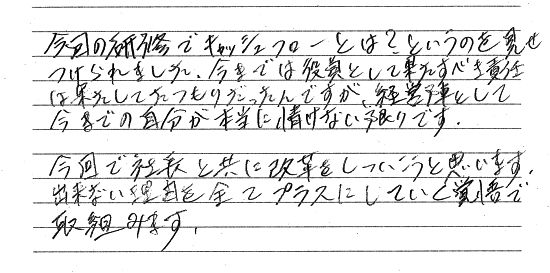 今回の研修でキャッシュフローとは?というのを見せ
つけられました、今までは役員として果たすべき責任
は果たしてたつもりだったんですが、経営陣として
今までの自分が本当に情けない限りです.
今回で社長と共に改革をしていこうと思います.
出来ない理由を全てプラスにしていく覚悟で
取組みます.